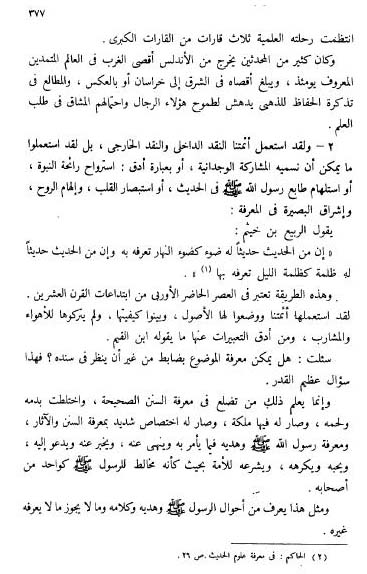 ٣٧٧
انتظمت رحلته العلمية ثلاث قارات من القارات الكبرى .
وكان كثير من المحدثين يخرج من الأندلس أقصى الغرب فى العالم المتمدين
المعروف يومئذ ، ويبلغ أقصاه فى الشرق إلى خراسان أو بالعكس ، والمطالع فى
تذكرة الحفاظ للذهبى يدهش لطموح هؤلاء الرجال واحتمالهم المشاق فى طلب
العلم .
٢ – ولقد استعمل أئمتنا النقد الداخلى والنقد الخارجى ، بل لقد استعملوا
ما يمكن أن نسميه المشاركة الوجدانية ، أو بعبارة أدق : استرواح رائحة النبوة ،
أو استلهام طابع رسول الله ﷺ فى الحديث ، أو استبصار القلب ، وإلهام الروح ،
وإشراق البصيرة فى المعرفة :
يقول الربيع بن خيثم :
« إن من الحديث حديثاً له ضوء كضوء النهار تعرفه به وإن من الحديث حديثاً
له ظلمة كظلمة الليل تعرفه بها (١) » .
وهذه الطريقة تعتبر فى العصر الحاضر الأوربى من ابتداعات القرن العشرين .
لقد استعملها أئمتنا ووضعوا لها الأصول ، وبينوا كيفيتها ، ولم يتركوها للأهواء
والمشارب ، ومن أدق التعبيرات عنها ما يقوله ابن القيم .
سئلت : هل يمكن معرفة الموضوع بضابط من غير أن ينظر فى سنده ؟ فهذا
سؤال عظيم القدر .
وإنما يعلم ذلك من تضلع فى معرفة السنن الصحيحة ، واختلطت بدمه
ولحمه ، وصار له فيها ملكة ، وصار له اختصاص شديد بمعرفة السنن والآثار ،
ومعرفة رسول الله ﷺ وهديه فيما يأمر به وينهى عنه ، ويخبر عنه ويدعو إليه ،
ويحبه ويكرهه ، ويشرعه للأمة بحيث كأنه مخالط للرسول ﷺ كواحد من
أصحابه .
ومثل هذا يعرف من أحوال الرسول ﷺ وهديه وكلامه وما لا يجوز ما لا يعرفه
غيره .
(٢) الحاكم : فى معرفة علوم الحديث . ص ٢٦ .